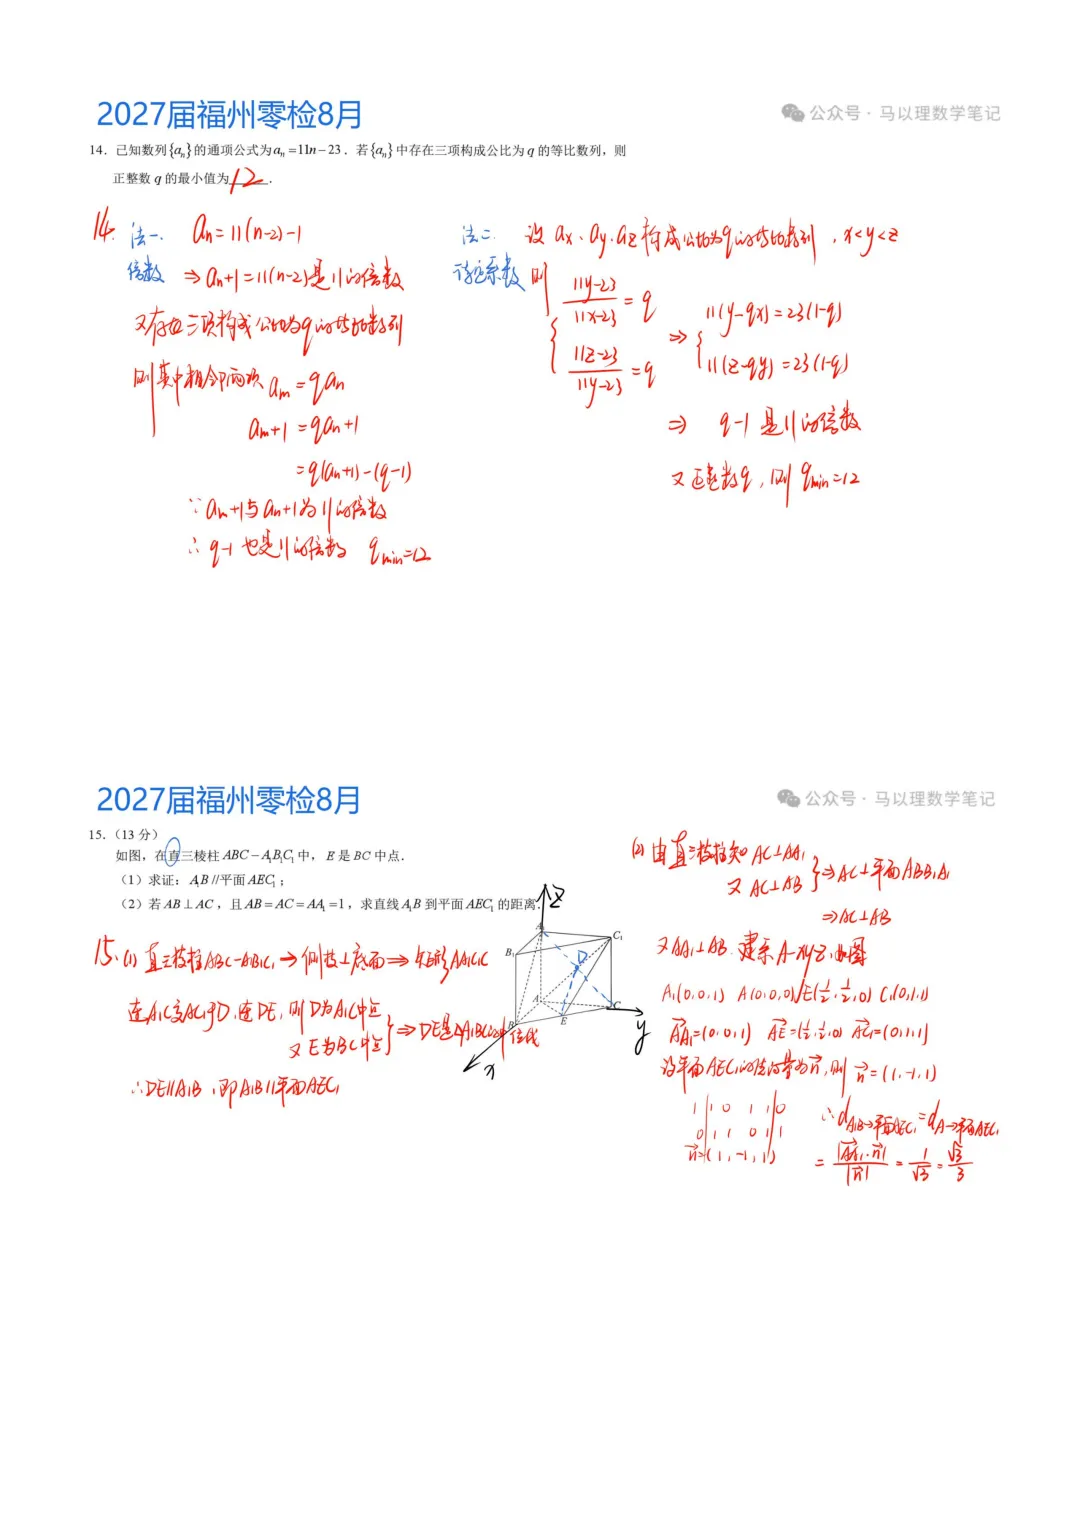 2027届福州零检8月
公众号·马以理数学笔记
14. 已知数列{aₙ}的通项公式为aₙ=11n−23. 若{aₙ}中存在三项构成公比为q的等比数列, 则
正整数q的最小值为 12 .
14. 法一. aₙ=11(n-2)-1
倍数 ⇒aₙ+1=11(n-2)是11的倍数
又存在三项构成公比为q的等比数列
则其中相邻两项 aₘ=qaₙ
aₘ+1=qaₙ+1
=q(aₙ+1)-(q-1)
∵aₘ+1与aₙ+1为11的倍数
∴q-1也是11的倍数 qmin=12
法二. 设aₓ.aᵧ.a_z构成公比为q的等比数列,x<y<z
待定系数 则
{(11y-23)/(11x-23)=q
(11z-23)/(11y-23)=q
⇒{11(y-qx)=23(1-q)
11(z-qy)=23(1-q)
⇒ q-1是11的倍数
又正整数q,则qmin=12
2027届福州零检8月
公众号·马以理数学笔记
15.（13分）
如图, 在直三棱柱ABC−A₁B₁C₁中, E是BC中点.
（1）求证: A₁B//平面AEC₁;
（2）若AB⊥AC, 且AB=AC=AA₁=1, 求直线A₁B到平面AEC₁的距离.
15.(1)直三棱柱ABC-A₁B₁C₁⇒侧棱⊥底面⇒矩形AA₁C₁C
连A₁C交AC₁于D,连DE,则D为A₁C中点
又E为BC中点}⇒DE是△A₁BC的中位线
∴DE∥A₁B,即A₁B∥平面AEC₁
z
A₁
C₁
B₁
D
A
C
B
E
y
x
(2)由直三棱柱知AC⊥AA₁
又AC⊥AB}⇒AC⊥平面ABB₁A₁
⇒AC⊥AB
又AA₁⊥AB 建系A-xyz,如图
A₁(0,0,1) A(0,0,0) E(½,½,0) C₁(0,1,1)
AA₁=(0,0,1) AE=(½,½,0) AC₁=(0,1,1)
设平面AEC₁的法向量为n,则n=(1,-1,1)
1 1 0 1 1 0
0 1 1 0 1 1
n=(1,-1,1)
∴dA₁B→平面AEC₁=dA→平面AEC₁
=|AA₁·n|/|n|=1/√3=√3/3